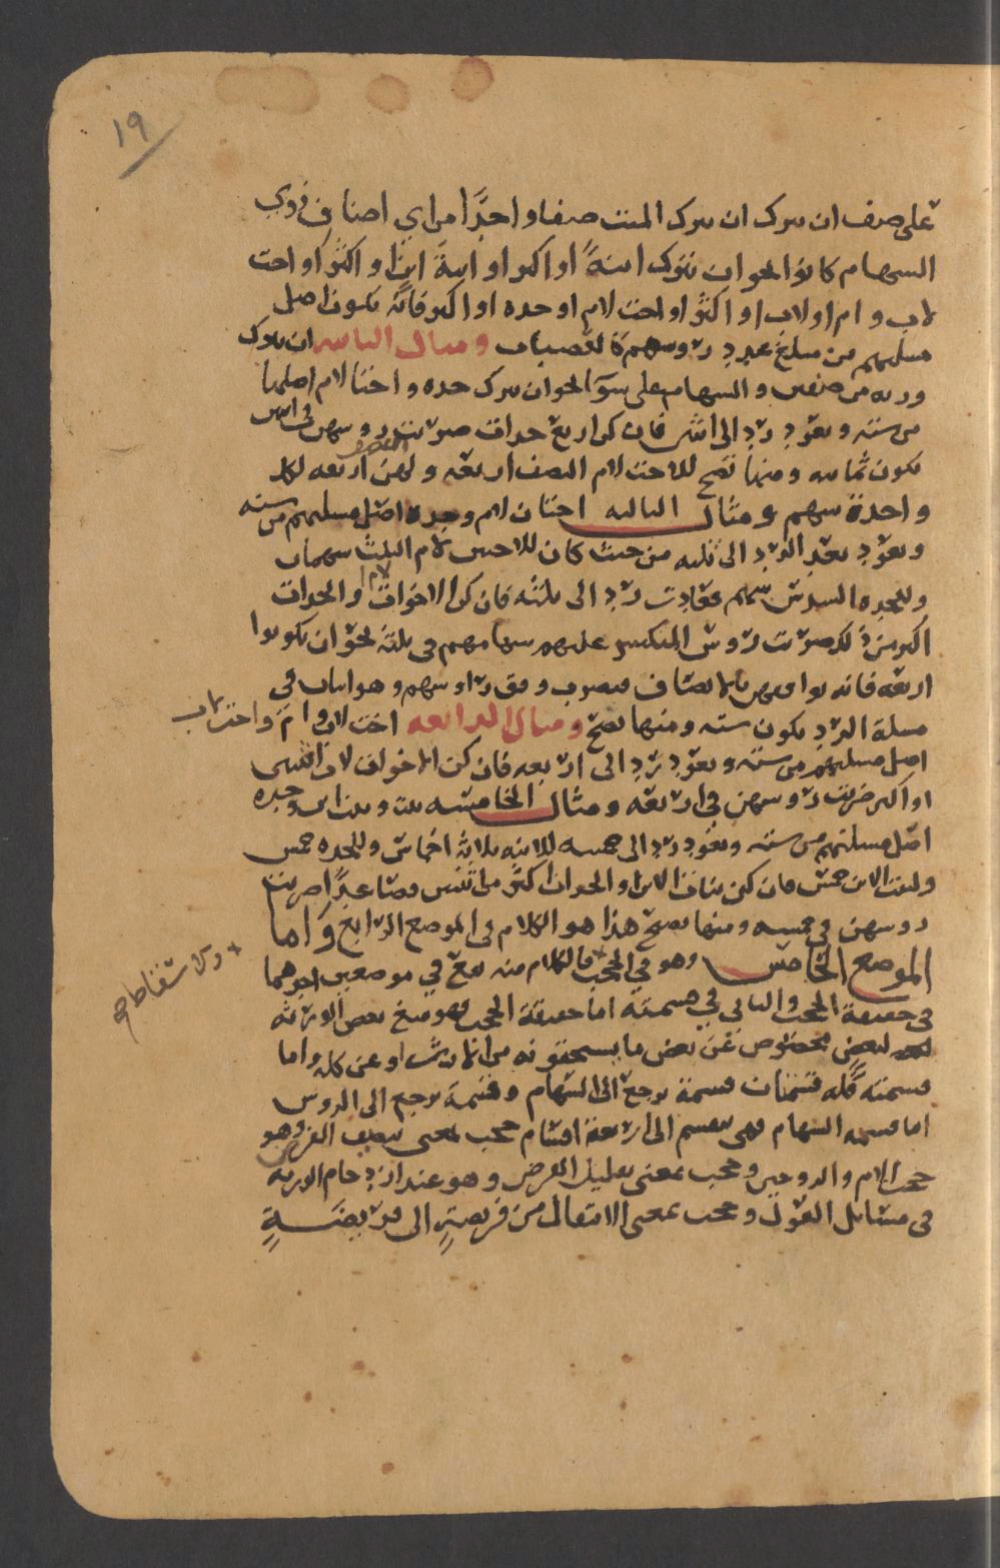 ١٩
على صنف ان يترك الميت صنفا واحدًا من اي اصناف ذوي
السهام كانوا نحو ان يترك ابنةً او اكثر او ابنة ابن او اكثر او اخت
لاب وام او لاب او اكثر او اخت لام او جده او اكثر فانه يكون اصل
مسلتهم من مبلغ عدد روسهم كالعصبات ومثال الثانيه ان يترك
ورثه من صنفين والسهام على سوآ نحو ان يترك جده واختا لام اصلها
من سته وتعود رد الى اثنين فان كن اربع جدات ضربت روسهن في اثنين
تكون ثمانيه ومنها تصح للاخت لام النصف اربعه ولهن اربعه لكل
واحدة سهم ومثال الثالثه اختان لام وجده اصل مسلتهم من سته
وتعود بعد الرد الى ثلثه من حيث كان للاختين لام الثلث سهمان
وللجده السدس سهم فعادت رد الى ثلثه فان كن الاخوات لام او الجدات
اكثر من ذلك ضربت روس المنكسر عليهم سهامهم في ثلثه نحو ان يكونوا
اربعه فانه يوافقهن بالانصاف فتضرب وفق روسهم وهو اثنان في
مسلة الرد يكون سته ومنها تصح ومثال الرابعه اخت لاب وام واخت لاب
اصل مسلتهم من سته وتعود رد الى اربعه فان كن الاخوات لاب اثنتين
او اكثر ضربت روسهن في اربعه ومثال الخامسه بنت وبنت ابن وجده
اصل مسلتهم من سته وتعود رد الى خمسه للابنه ثلاثة اخماس وللجده خمس
ولبنت الابن خمس فان كن بنات الابن او الجدات اكثر من اثنتين فصاعدًا ضربت
روسهن في خمسه ومنها تصح هذا هو الكلام في الموضع الرابع واما
الموضع الخامس وهو في الحجب فالكلام منه يقع في موضعين احدهما
في حقيقة الحجب والثاني في قسمته اما حقيقة الحجب فهو منع بعض الورثه
لبعض مخصوص عن بعض ما يستحقونه من الارث او عن كله واما
قسمته فله قسمتان قسمة ترجع الى السهام وقسمة ترجع الى الروس
اما قسمه السهام فهي تنقسم الى اربعة اقسام حجب بمعنى تنصيف الفرض وهو
حجب الام والزوجين وحجب بمعنى تقليل الفرض وهو عند ازدحام الورثه
في مسايل العول وحجب بمعنى الانتقال من فريضةٍ الى فريضــةٍ